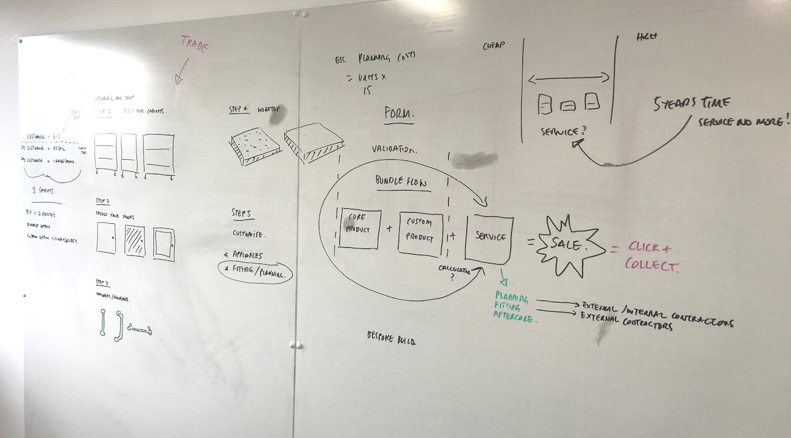 TRADE
STEP 2
SELECT YOUR DOORS
STEP 3
STEP 4 WORKTOP
STEP 5
CUSTOMISE.
APPLIANCES
x FITTING/PLANNING.
EST. PLANNING COSTS
= UNITS x
15
FORM.
VALIDATION.
BUNDLE FLOW
CORE
PRODUCT
+
CUSTOM
PRODUCT
+
SERVICE
=
SALE.
= CLICK +
COLLECT.
CALCULATOR
?
PLANNING
FITTING
AFTERCARE.
EXTERNAL/INTERNAL CONTRACTORS
EXTERNAL CONTRACTORS
BESPOKE BUILD.
CHEAP
HIGH
SERVICE?
5 YEARS TIME
SERVICE NO MORE!